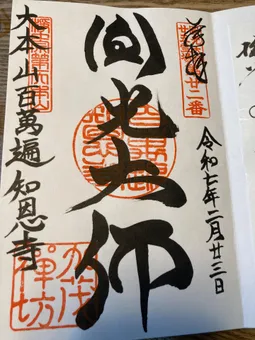 奉拝
廿一番
令和七年二月廿三日
圓光大師
大本山百萬遍知恩寺
加茂
禅坊